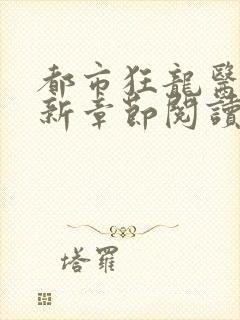 都市狂龍醫
新章節閱讀
塔羅